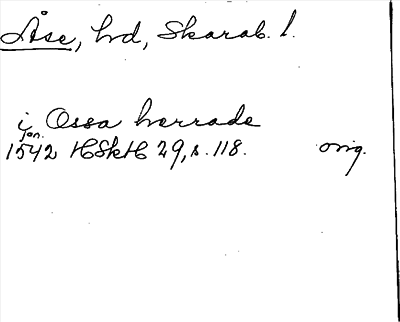 Åse, hd, Skarab. l.
i Ossa herrade
jan.
1542 HSkH 29, s. 118. orig.